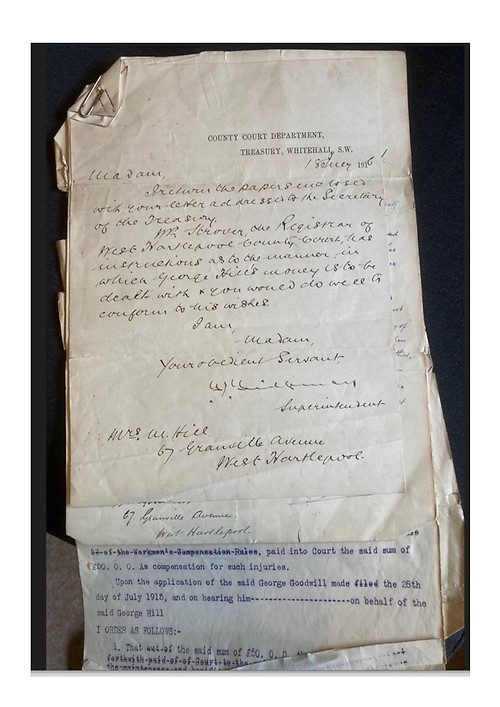 COUNTY COURT DEPARTMENT,
TREASURY, WHITEHALL, S.W.
1916
Madam,
I return the papers enclosed
with your letter addressed to the Secretary
of the Treasury.
Mr. the Registrar of
West Hartlepool County Court, has
instructions as to the manner in
which George Hill's money is to be
dealt with & you would do well to
conform to his wishes.
I am,
Madam,
Your obedient Servant
Superintendent
Mrs. M. Hill
67 Granville Avenue
West Hartlepool.
67 Granville Avenue,
West Hartlepool.
of the Workmen's Compensation Rules, paid into Court the said sum of
£50. 0. 0. As compensation for such injuries.
Upon the application of the said George Goodwill made filed the 28th
day of July 1915, and on hearing him----------------------on behalf of the
said George Hill
I ORDER AS FOLLOWS:-
1. That out of the said sum of £50. 0. 0.
forthwith paid of of Court to the